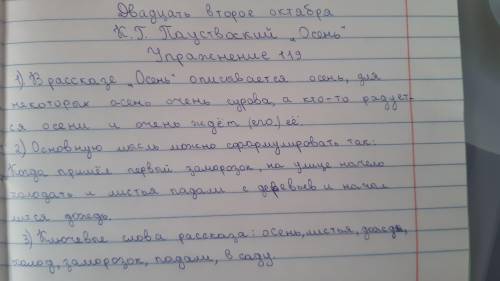 Двадцать второе октября
К. Г. Паустовский „Осень"
Упражнение 119
1) В рассказе „Осень" описывается осень, для
некоторых осень очень сурова, а кто-то радует-
ся осени и очень ждёт (его) её.
2) Основную мысль можно сформулировать так:
Когда пришёл первый заморозок, на улице начело
холодать и листья падали с деревьев и начал
лится дождь.
3) Ключевые слова рассказа: осень, листья, дождь,
холод, заморозок, падали, в саду.